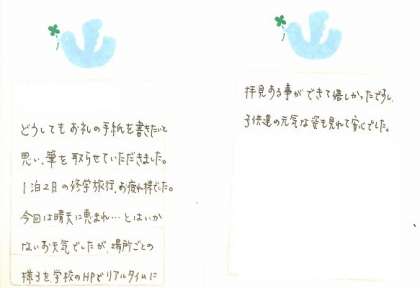 どうしてもお礼の手紙を書きたいと
思い、筆を取らせていただきました。
1泊2日の修学旅行、お疲れ様でした。
今回は晴天に恵まれ…とはいか
ないお天気でしたが、場所ごとの
様子を学校のHPでリアルタイムに
拝見する事ができて嬉しかったですし、
子供達の元気な姿も見れて安心でした。